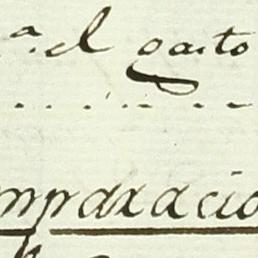 a. el gasto
mparacio